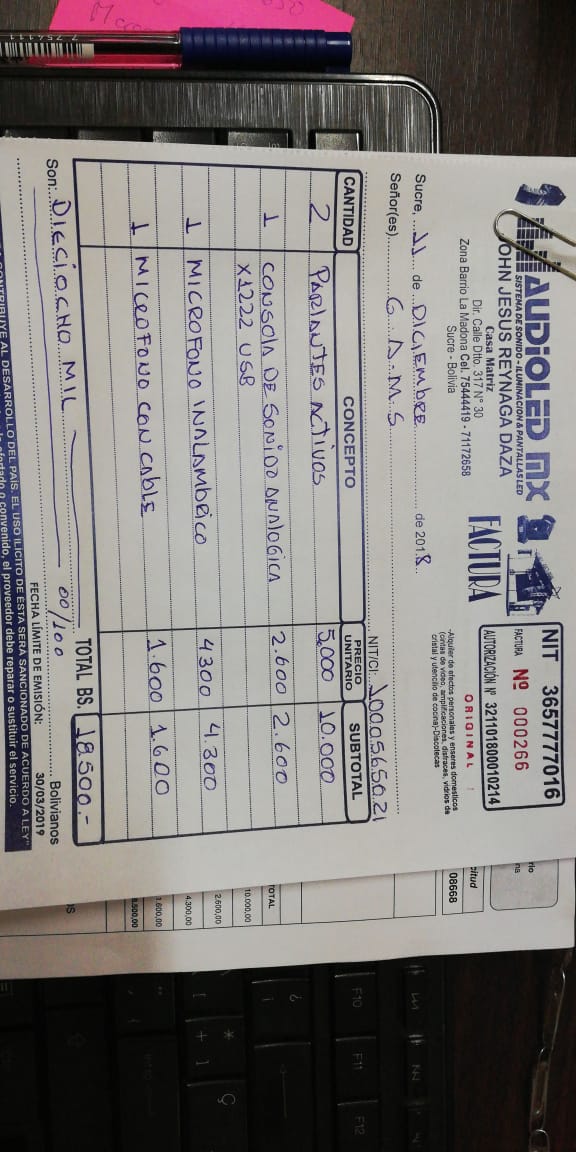 AUDiOLED MX
SISTEMA DE SONIDO - ILUMINACION & PANTALLAS LED
JOHN JESUS REYNAGA DAZA
Casa Matriz
Dir. Calle Ditto. 317 N° 30
Zona Barrio La Madona Cel. 75444419 - 71172658
Sucre - Bolivia
FACTURA
NIT 3657777016
FACTURA Nº 000266
AUTORIZACIÓN Nº 321101800010214
ORIGINAL
-Alquiler de efectos personales y enseres domesticos
(cintas de video, amplificaciones, disfraces, vidrios de
cristal y utencilio de cocina)-Discotecas
Sucre, 11 de DICIEMBRE de 2018
Señor(es) G.A.M.S NIT/CI: 1000565021
CANTIDAD CONCEPTO PRECIO UNITARIO SUBTOTAL
2 PARLANTES ACTIVOS 5.000 10.000
1 CONSOLA DE SONIDO ANALOGICA 2.600 2.600
X1222 USB
1 MICROFONO INALAMBRICO 4300 4.300
1 MICROFONO CON CABLE 1.600 1.600
TOTAL BS. 18.500.-
Son: DIECIOCHO MIL 00/100 Bolivianos
FECHA LÍMITE DE EMISIÓN: 30/03/2019
CONTRIBUYE AL DESARROLLO DEL PAÍS. EL USO ILÍCITO DE ÉSTA SERÁ SANCIONADO DE ACUERDO A LEY"
ofertado o convenido, el proveedor debe reparar o sustituir el servicio.
citud
08668
OTAL
10.000,00
2.600,00
4.300,00
1.600,00
8.500,00
7 754111
F10
F11
F12